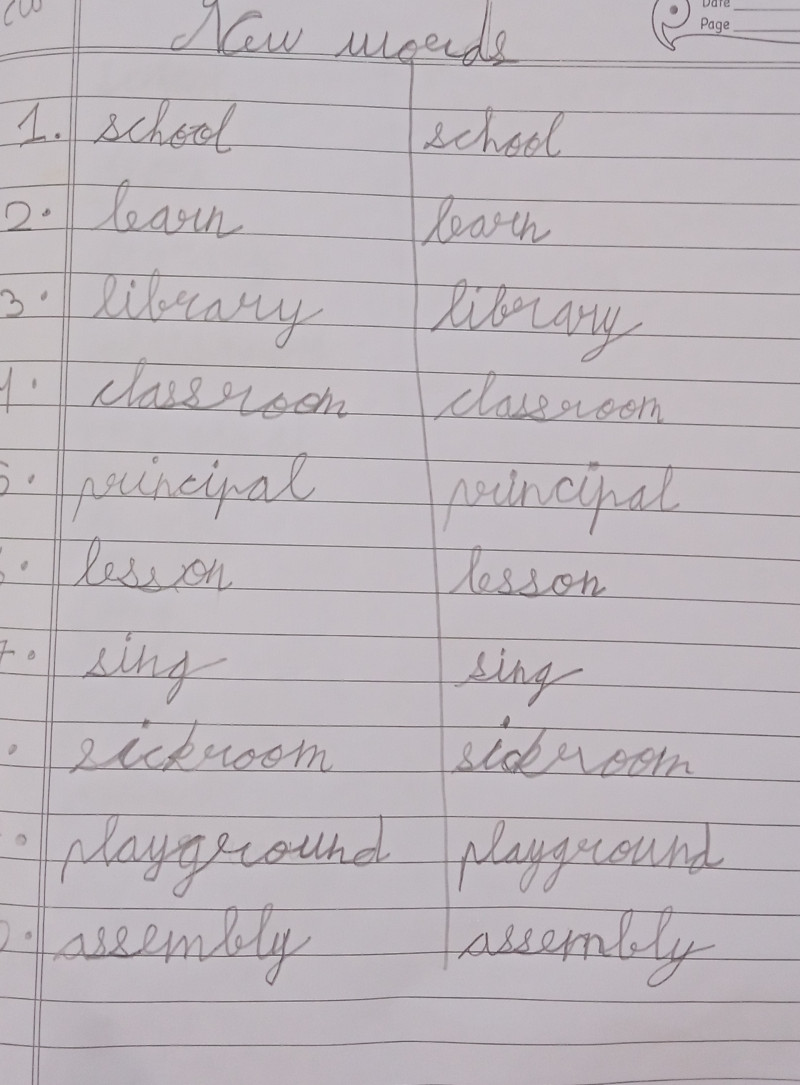 cw
Date
Page
New words
1. school school
2. learn learn
3. library library
4. classroom classroom
5. principal principal
6. lesson lesson
7. sing sing
. sickroom sickroom
. playground playground
. assembly assembly